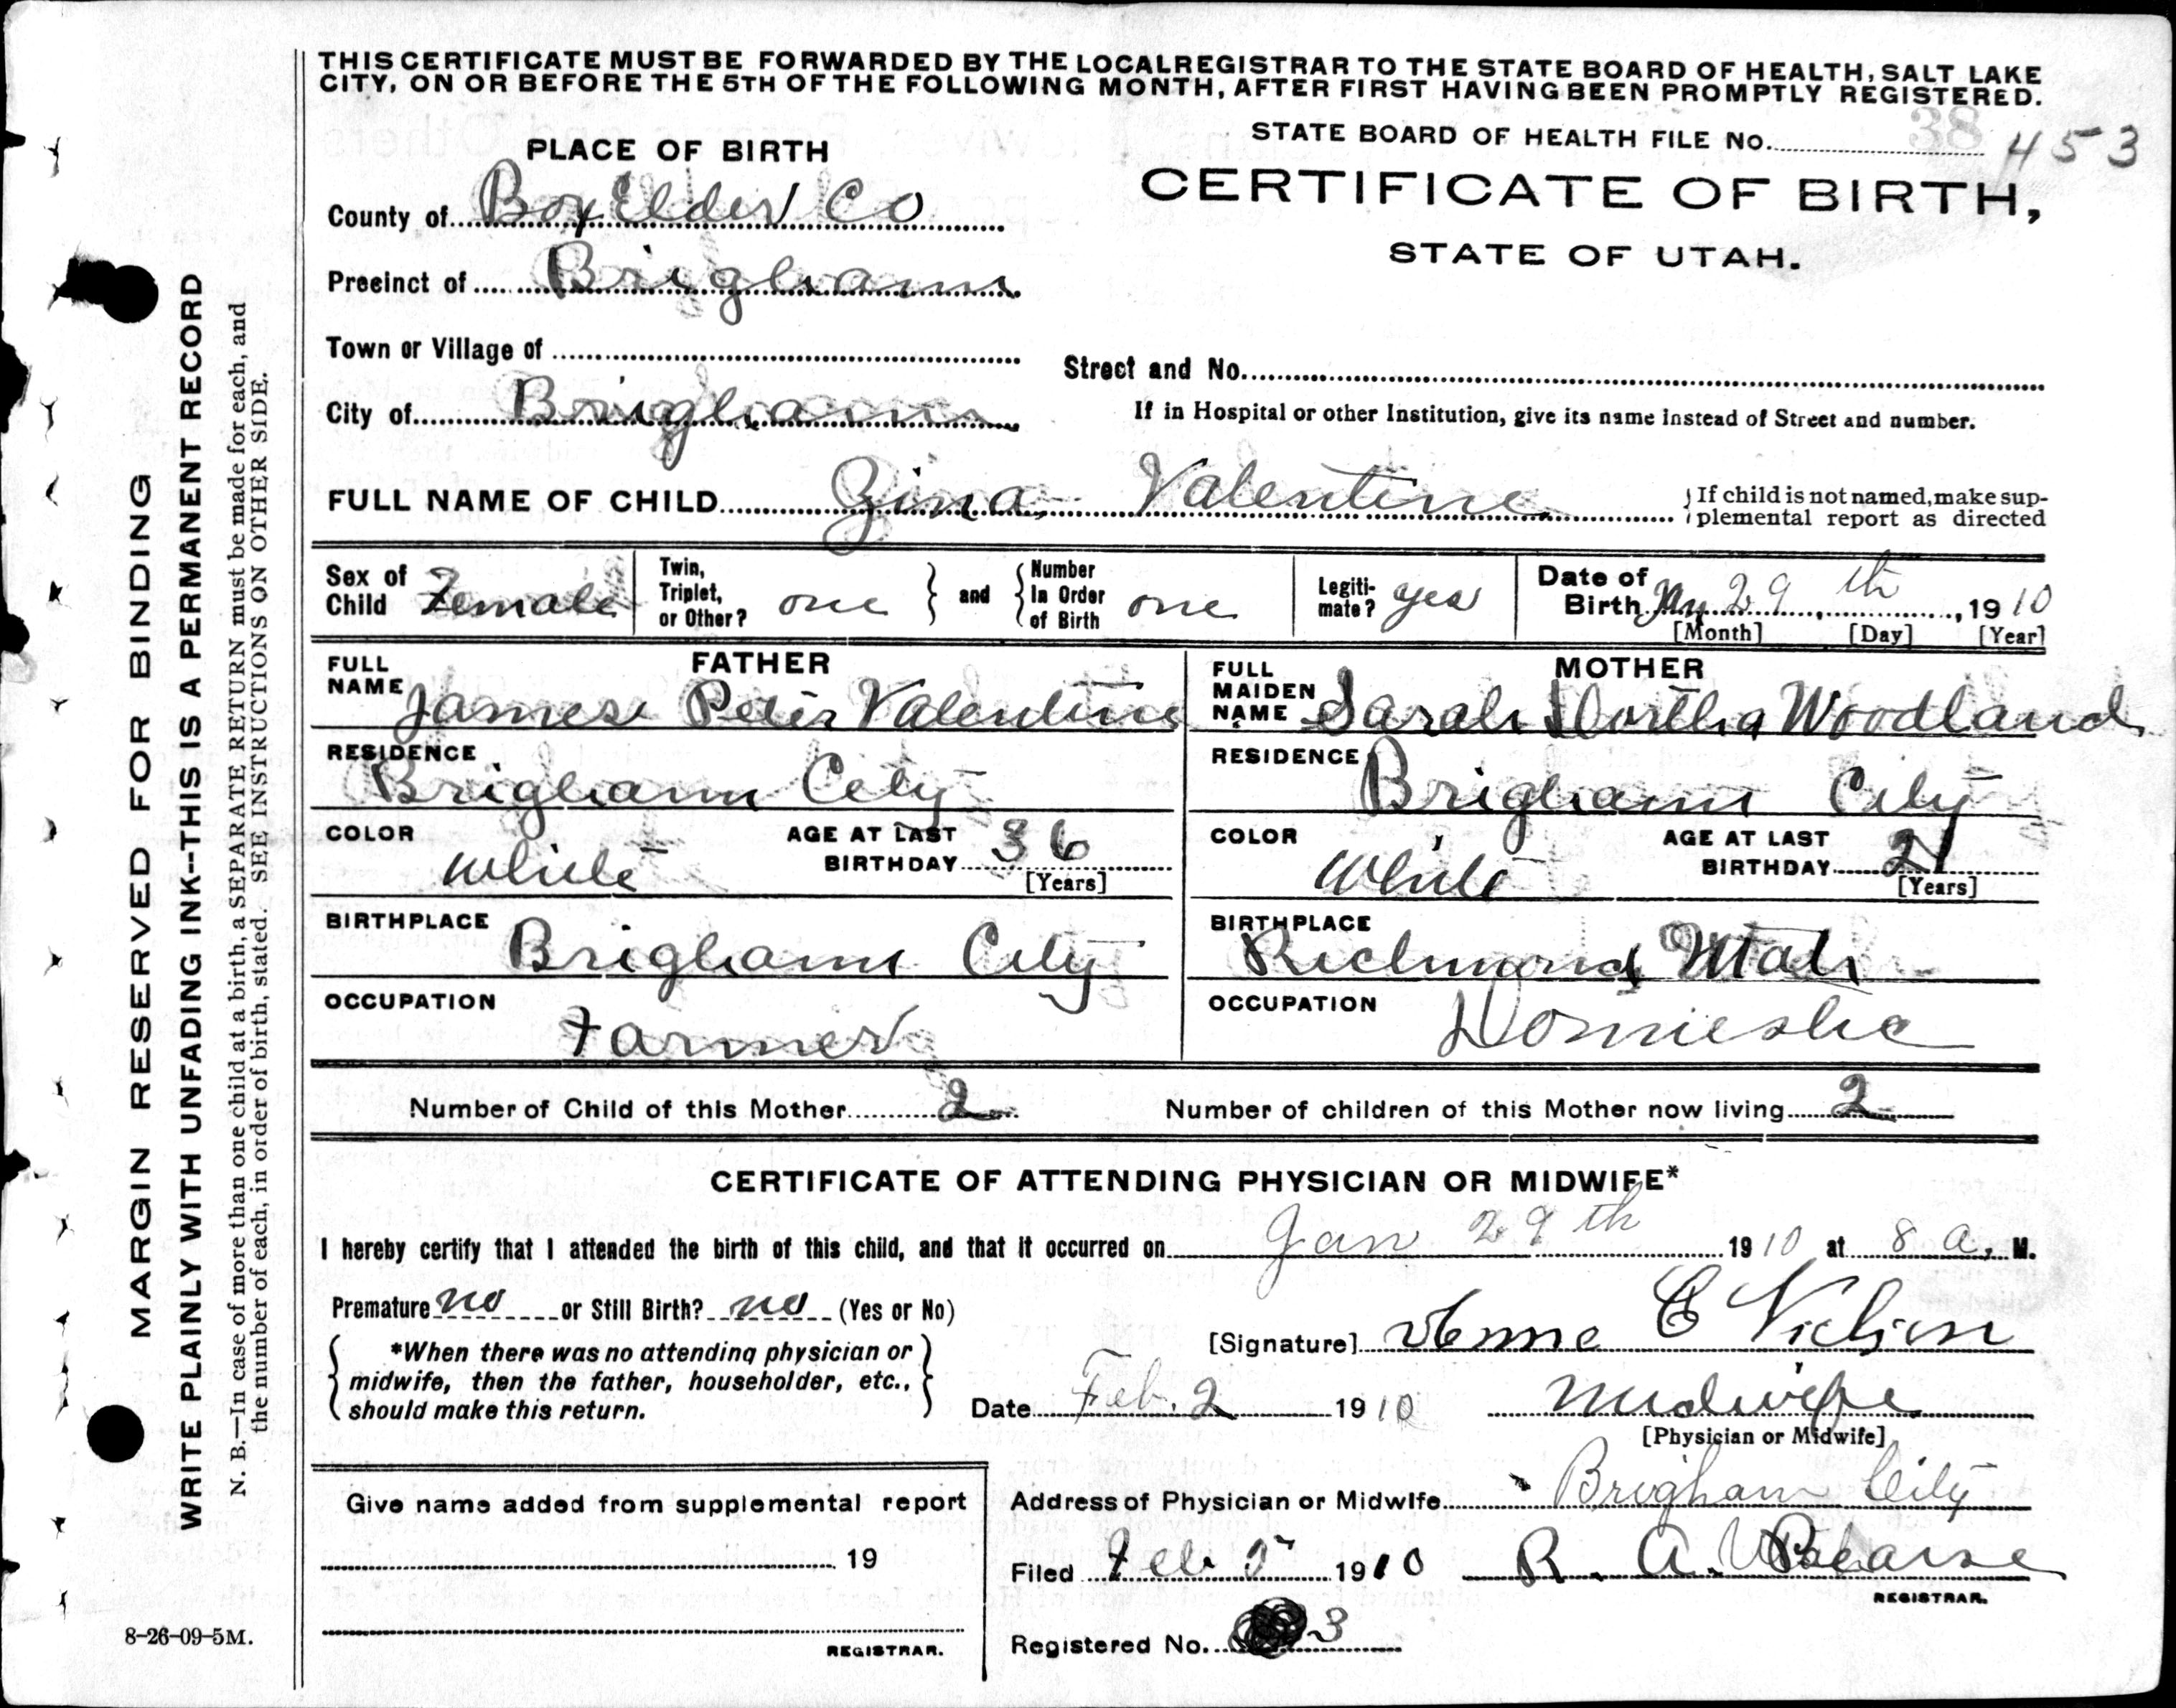 THIS CERTIFICATE MUST BE FORWARDED BY THE LOCAL REGISTRAR TO THE STATE BOARD OF HEALTH, SALT LAKE
CITY, ON OR BEFORE THE 5TH OF THE FOLLOWING MONTH, AFTER FIRST HAVING BEEN PROMPTLY REGISTERED.
PLACE OF BIRTH
County of Box Elder Co
Precinct of Brigham
Town or Village of
City of Brigham
STATE BOARD OF HEALTH FILE No. 38 453
CERTIFICATE OF BIRTH,
STATE OF UTAH.
Street and No.
If in Hospital or other Institution, give its name instead of Street and number.
FULL NAME OF CHILD Zina Valentine
If child is not named, make sup-
plemental report as directed
Sex of Child Female
Twin, Triplet, or Other? one
and
Number In Order of Birth one
Legiti-mate? yes
Date of Birth 29 th, 1910
[Month] [Day] [Year]
FATHER
FULL NAME James Peter Valentine
RESIDENCE Brigham City
COLOR White
AGE AT LAST BIRTHDAY 36
[Years]
BIRTHPLACE Brigham City
OCCUPATION Farmer
MOTHER
FULL MAIDEN NAME Sarah Dortha Woodland
RESIDENCE Brigham City
COLOR White
AGE AT LAST BIRTHDAY 21
[Years]
BIRTHPLACE Richmond Utah
OCCUPATION Domestic
Number of Child of this Mother 2
Number of children of this Mother now living 2
CERTIFICATE OF ATTENDING PHYSICIAN OR MIDWIFE*
I hereby certify that I attended the birth of this child, and that it occurred on Jan 29th 1910 at 8 a, M.
Premature no or Still Birth? no (Yes or No)
*When there was no attending physician or
midwife, then the father, householder, etc.,
should make this return.
[Signature] E Nielsen
Date Feb. 2 1910
Midwife
[Physician or Midwife]
Address of Physician or Midwife Brigham City
Give name added from supplemental report
19
REGISTRAR.
Filed Feb 5 1910
R. A. Pearse
REGISTRAR.
Registered No. 3
8-26-09-5M.
MARGIN RESERVED FOR BINDING
WRITE PLAINLY WITH UNFADING INK--THIS IS A PERMANENT RECORD
N. B.—In case of more than one child at a birth, a SEPARATE RETURN must be made for each, and
the number of each, in order of birth, stated. SEE INSTRUCTIONS ON OTHER SIDE.